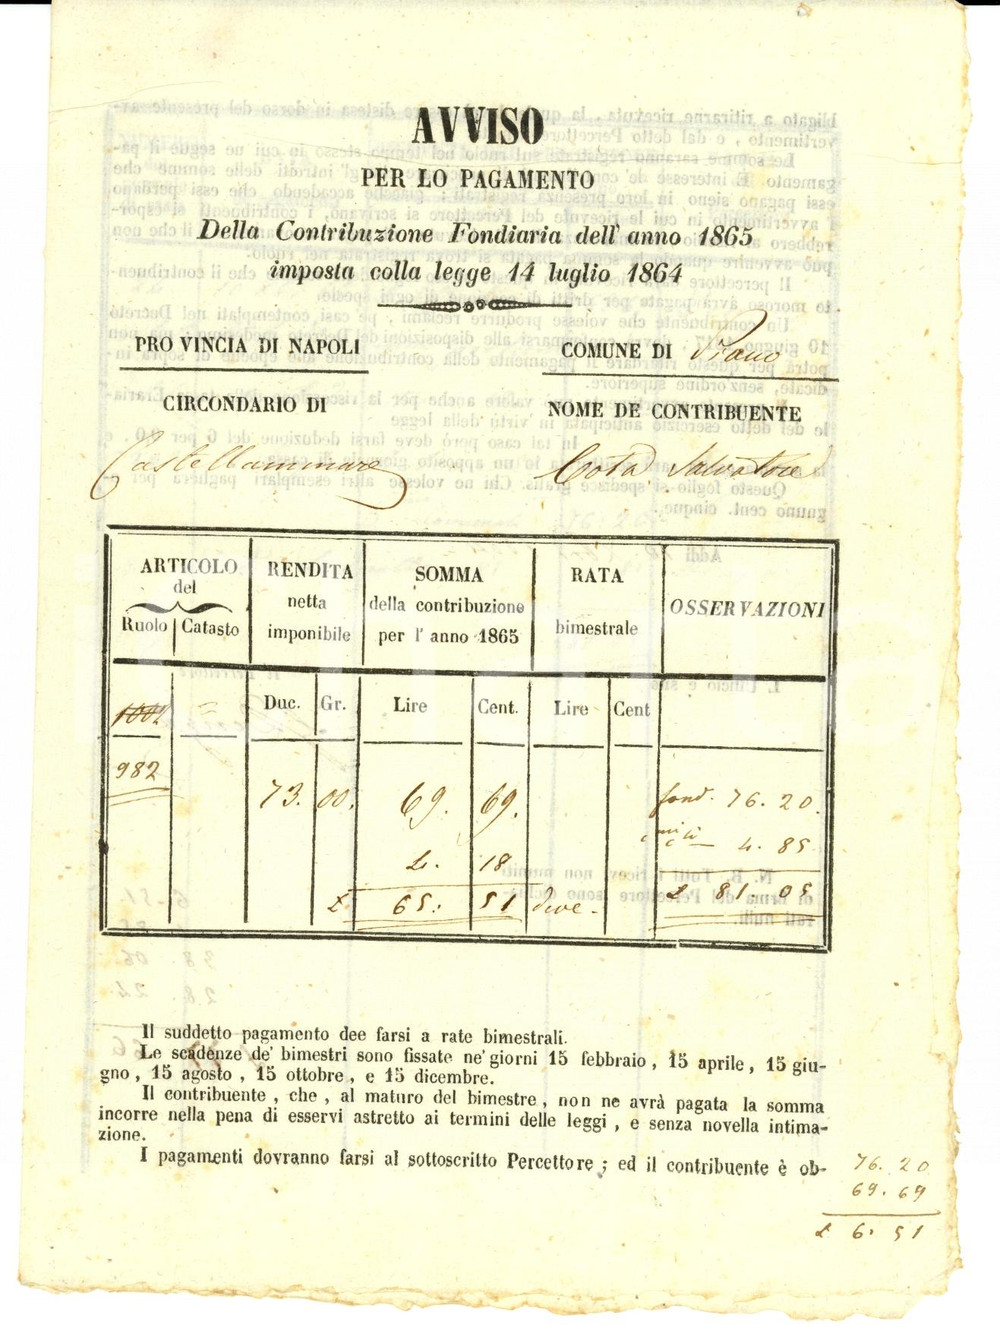 AVVISO
PER LO PAGAMENTO
Della Contribuzione Fondiaria dell' anno 1865
imposta colla legge 14 luglio 1864
PROVINCIA DI NAPOLI
COMUNE DI Piano
CIRCONDARIO DI
NOME DE CONTRIBUENTE
Castellammare
Cota Salvatore
ARTICOLO
del
Ruolo Catasto
RENDITA
netta
imponibile
SOMMA
della contribuzione
per l' anno 1865
RATA
bimestrale
OSSERVAZIONI
Duc. Gr. Lire Cent. Lire Cent
1004 =
982
73. 00. 69. 69. fond. 76. 20.
4. 18 4. 85
£ 65: 51 deve- £ 81. 05
Il suddetto pagamento dee farsi a rate bimestrali.
Le scadenze de' bimestri sono fissate ne' giorni 15 febbraio, 15 aprile, 15 giu-
gno, 15 agosto, 15 ottobre, e 15 dicembre.
Il contribuente, che, al maturo del bimestre, non ne avrà pagata la somma
incorre nella pena di esservi astretto ai termini delle leggi, e senza novella intima-
zione.
I pagamenti dovranno farsi al sottoscritto Percettore; ed il contribuente è ob-
76. 20
69. 69
£ 6. 51